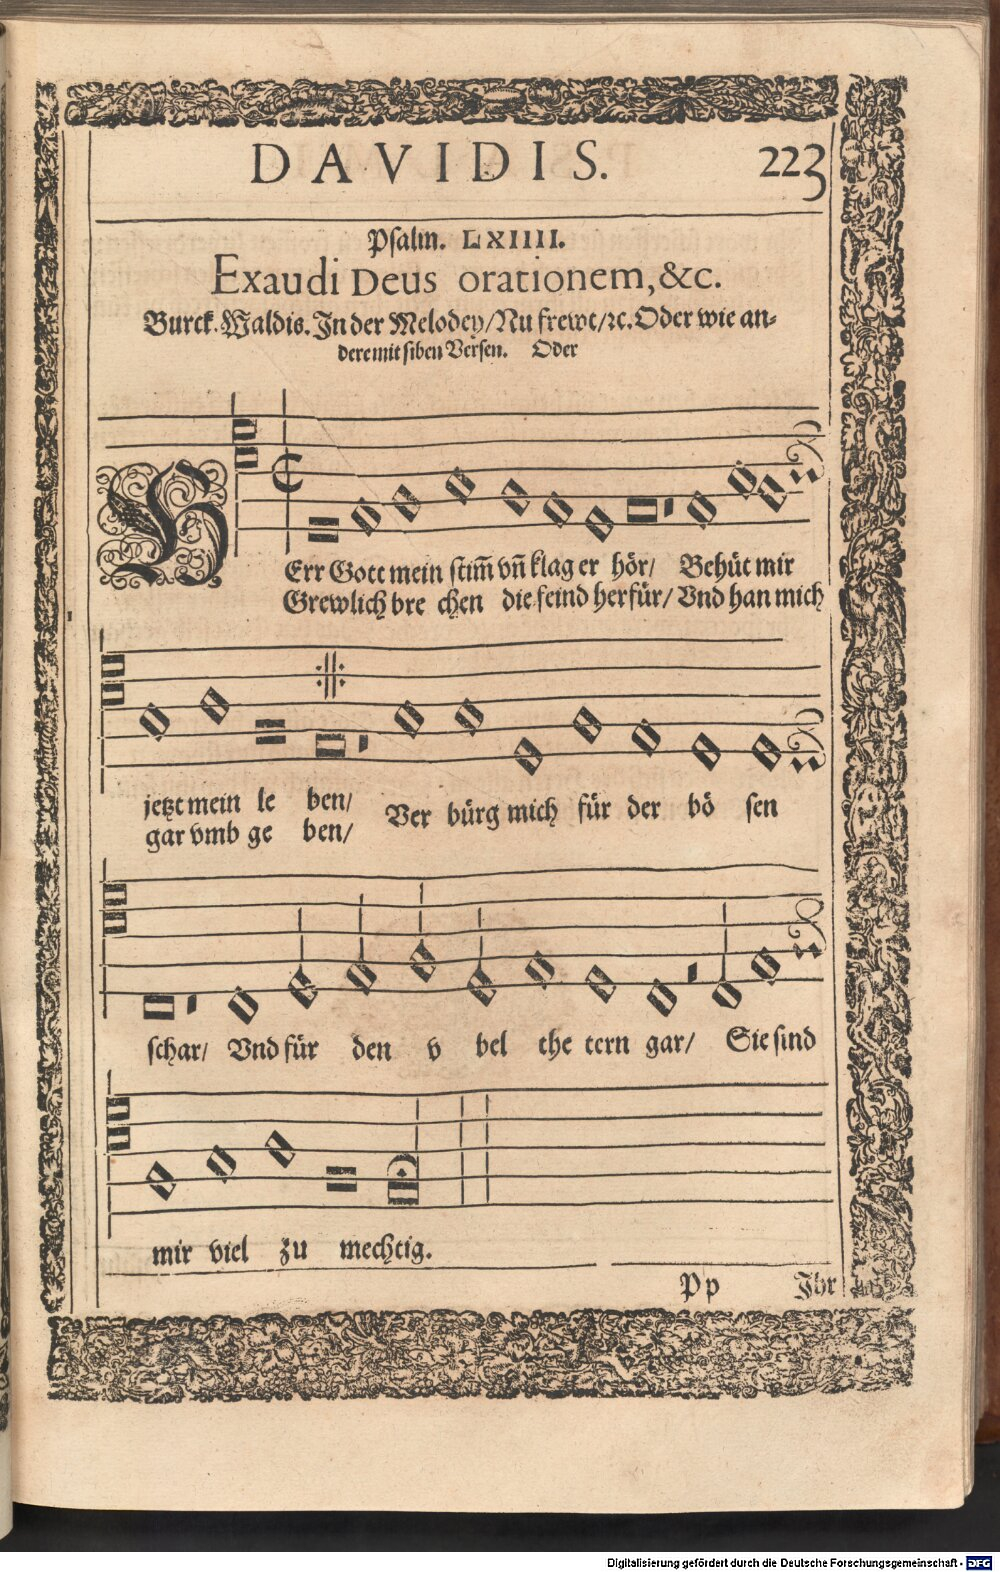 DAVIDIS. 223
Psalm. LXIIII.
Exaudi Deus orationem, &c.
Burck. Waldis. In der Melodey/ Nu frewt/ ꝛc. Oder wie an-
dere mit siben Versen. Oder
HErr Gott mein stim̃ vñ klag er hör/ Behüt mir
Grewlich bre chen die feind herfür/ Vnd han mich
jetzt mein le ben/ Ver bürg mich für der bö sen
gar vmb ge ben/
schar/ Vnd für den v bel the tern gar/ Sie sind
mir viel zu mechtig.
Pp Ihr
Digitalisierung gefördert durch die Deutsche Forschungsgemeinschaft - DFG